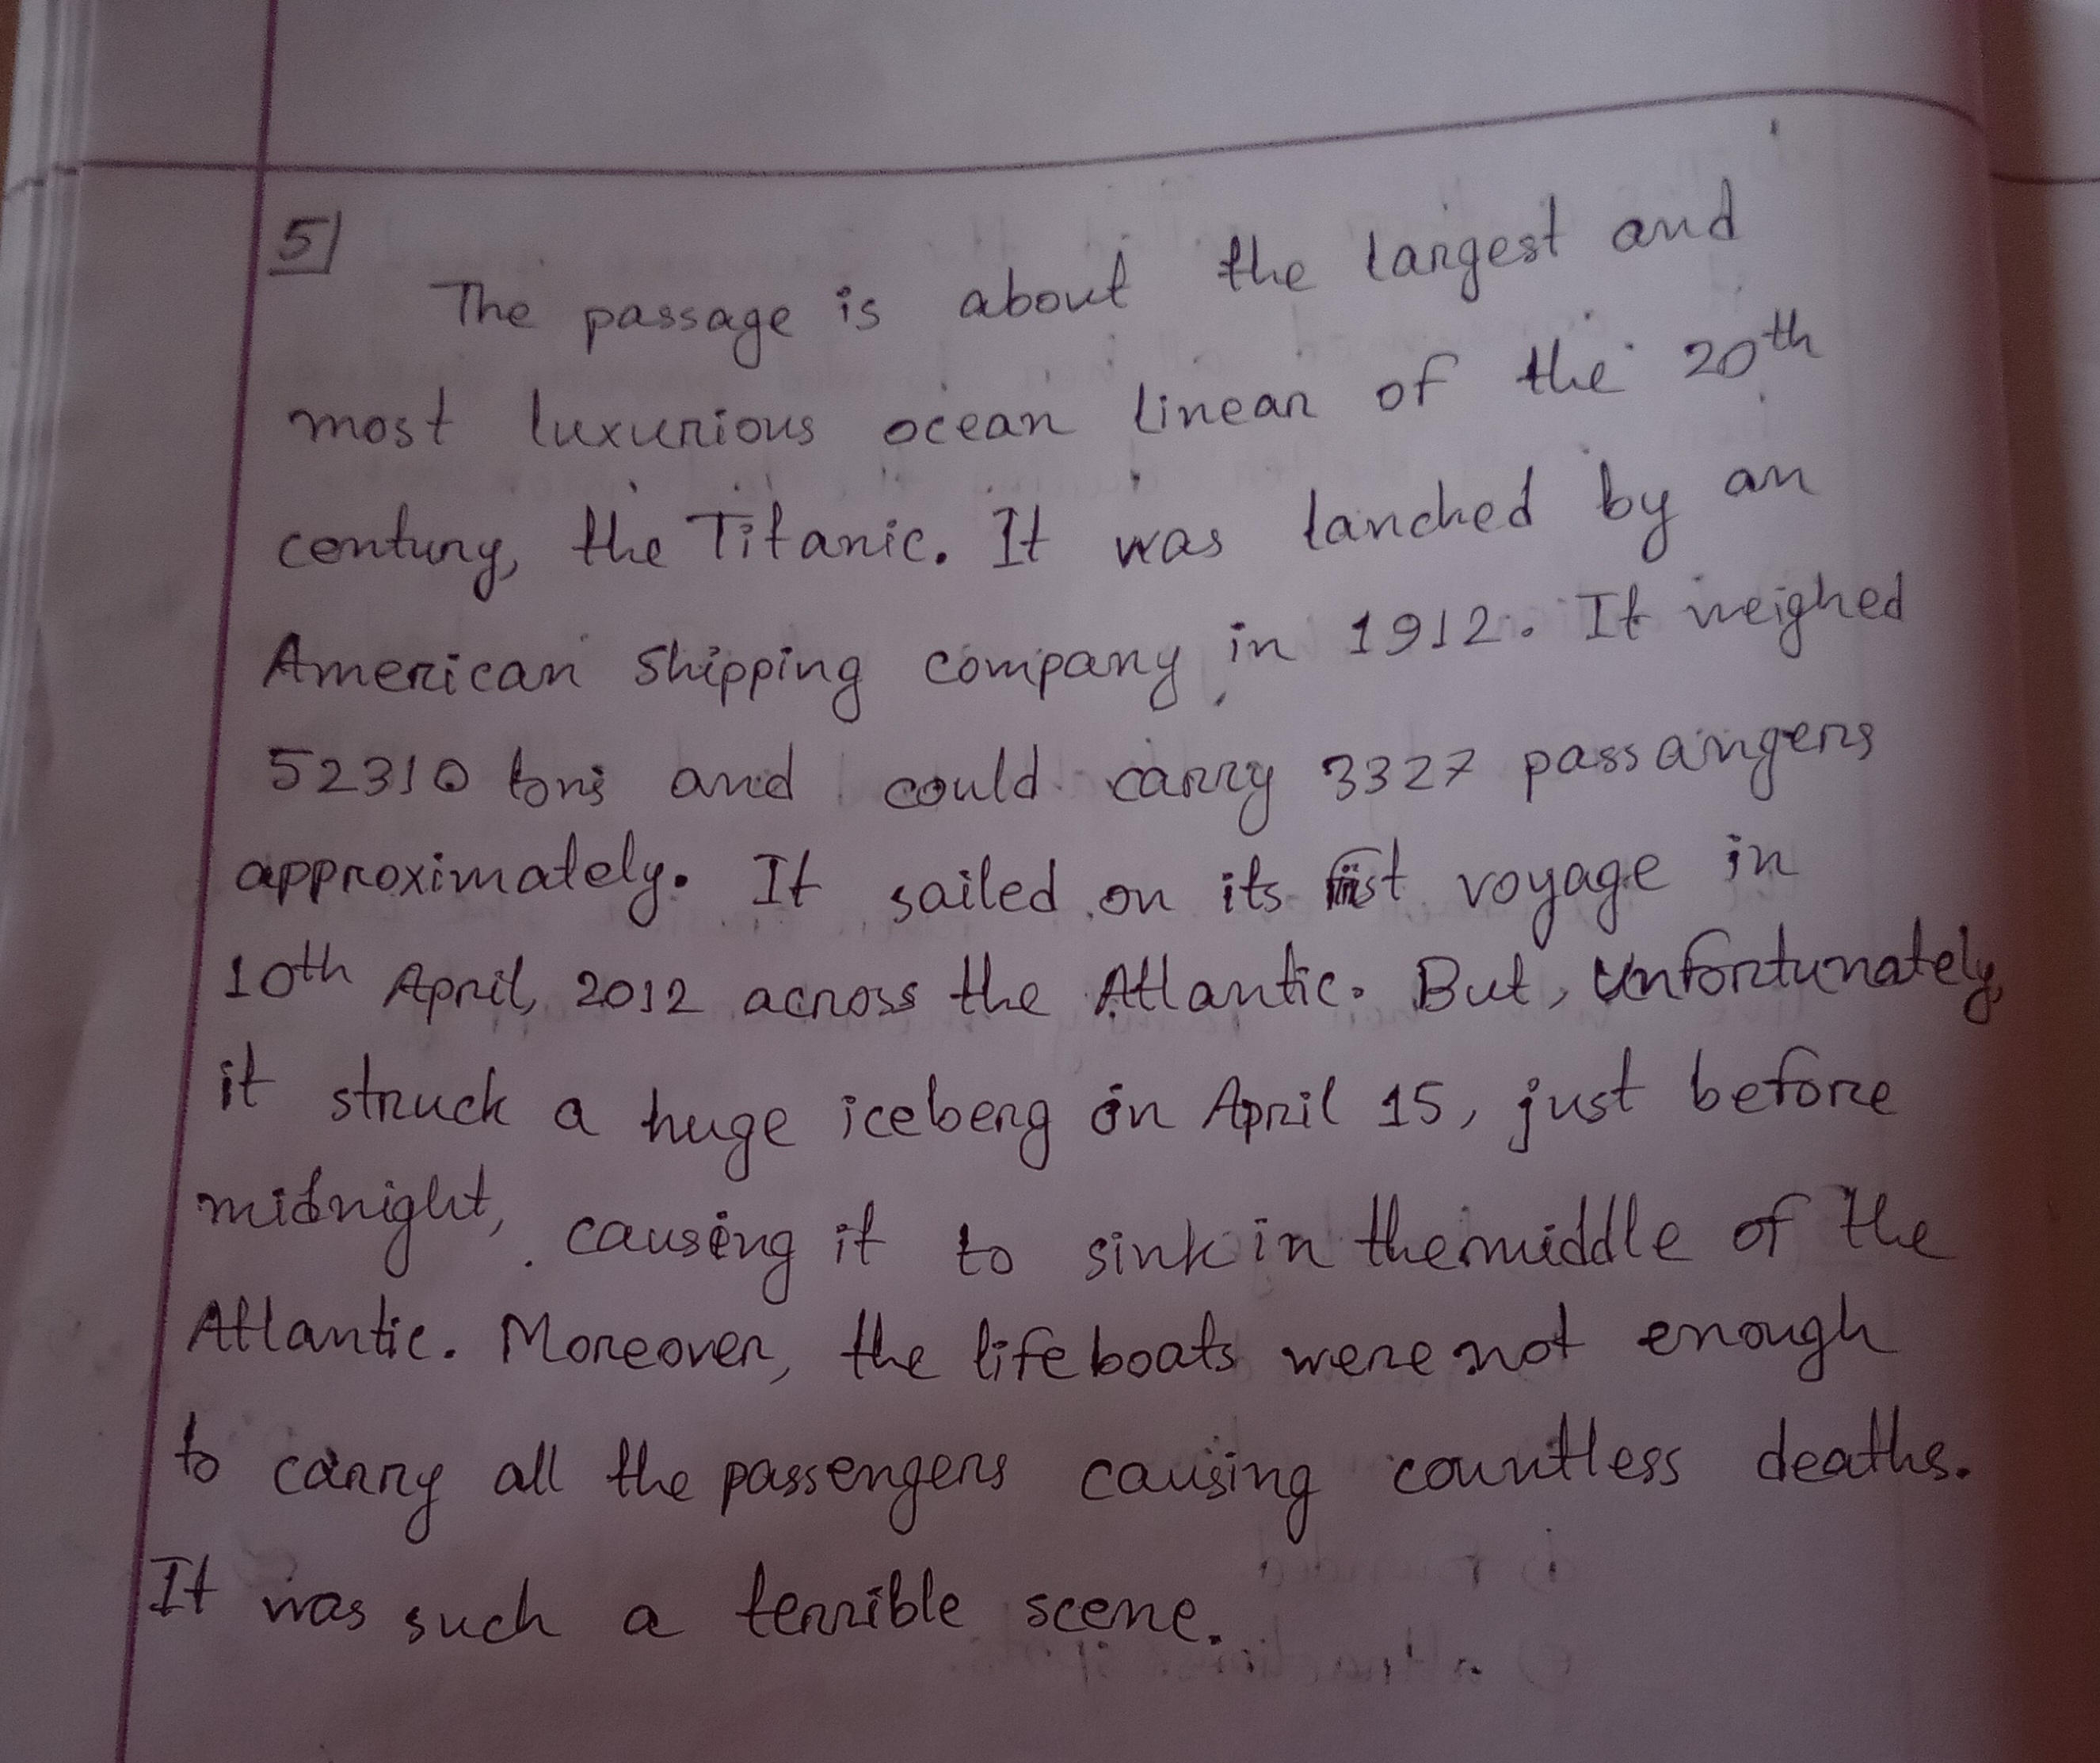 5)
The passage is about the largest and
most luxurious ocean linear of the 20th
century, the Titanic. It was lanched by an
American shipping company in 1912. It weighed
52310 tons and could carry 3327 passangers
approximately. It sailed on its first voyage in
10th April, 2012 across the Atlantic. But, unfortunately,
it struck a huge iceberg on April 15, just before
midnight, causing it to sink in the middle of the
Atlantic. Moreover, the lifeboats were not enough
to carry all the passengers causing countless deaths.
It was such a terrible scene.